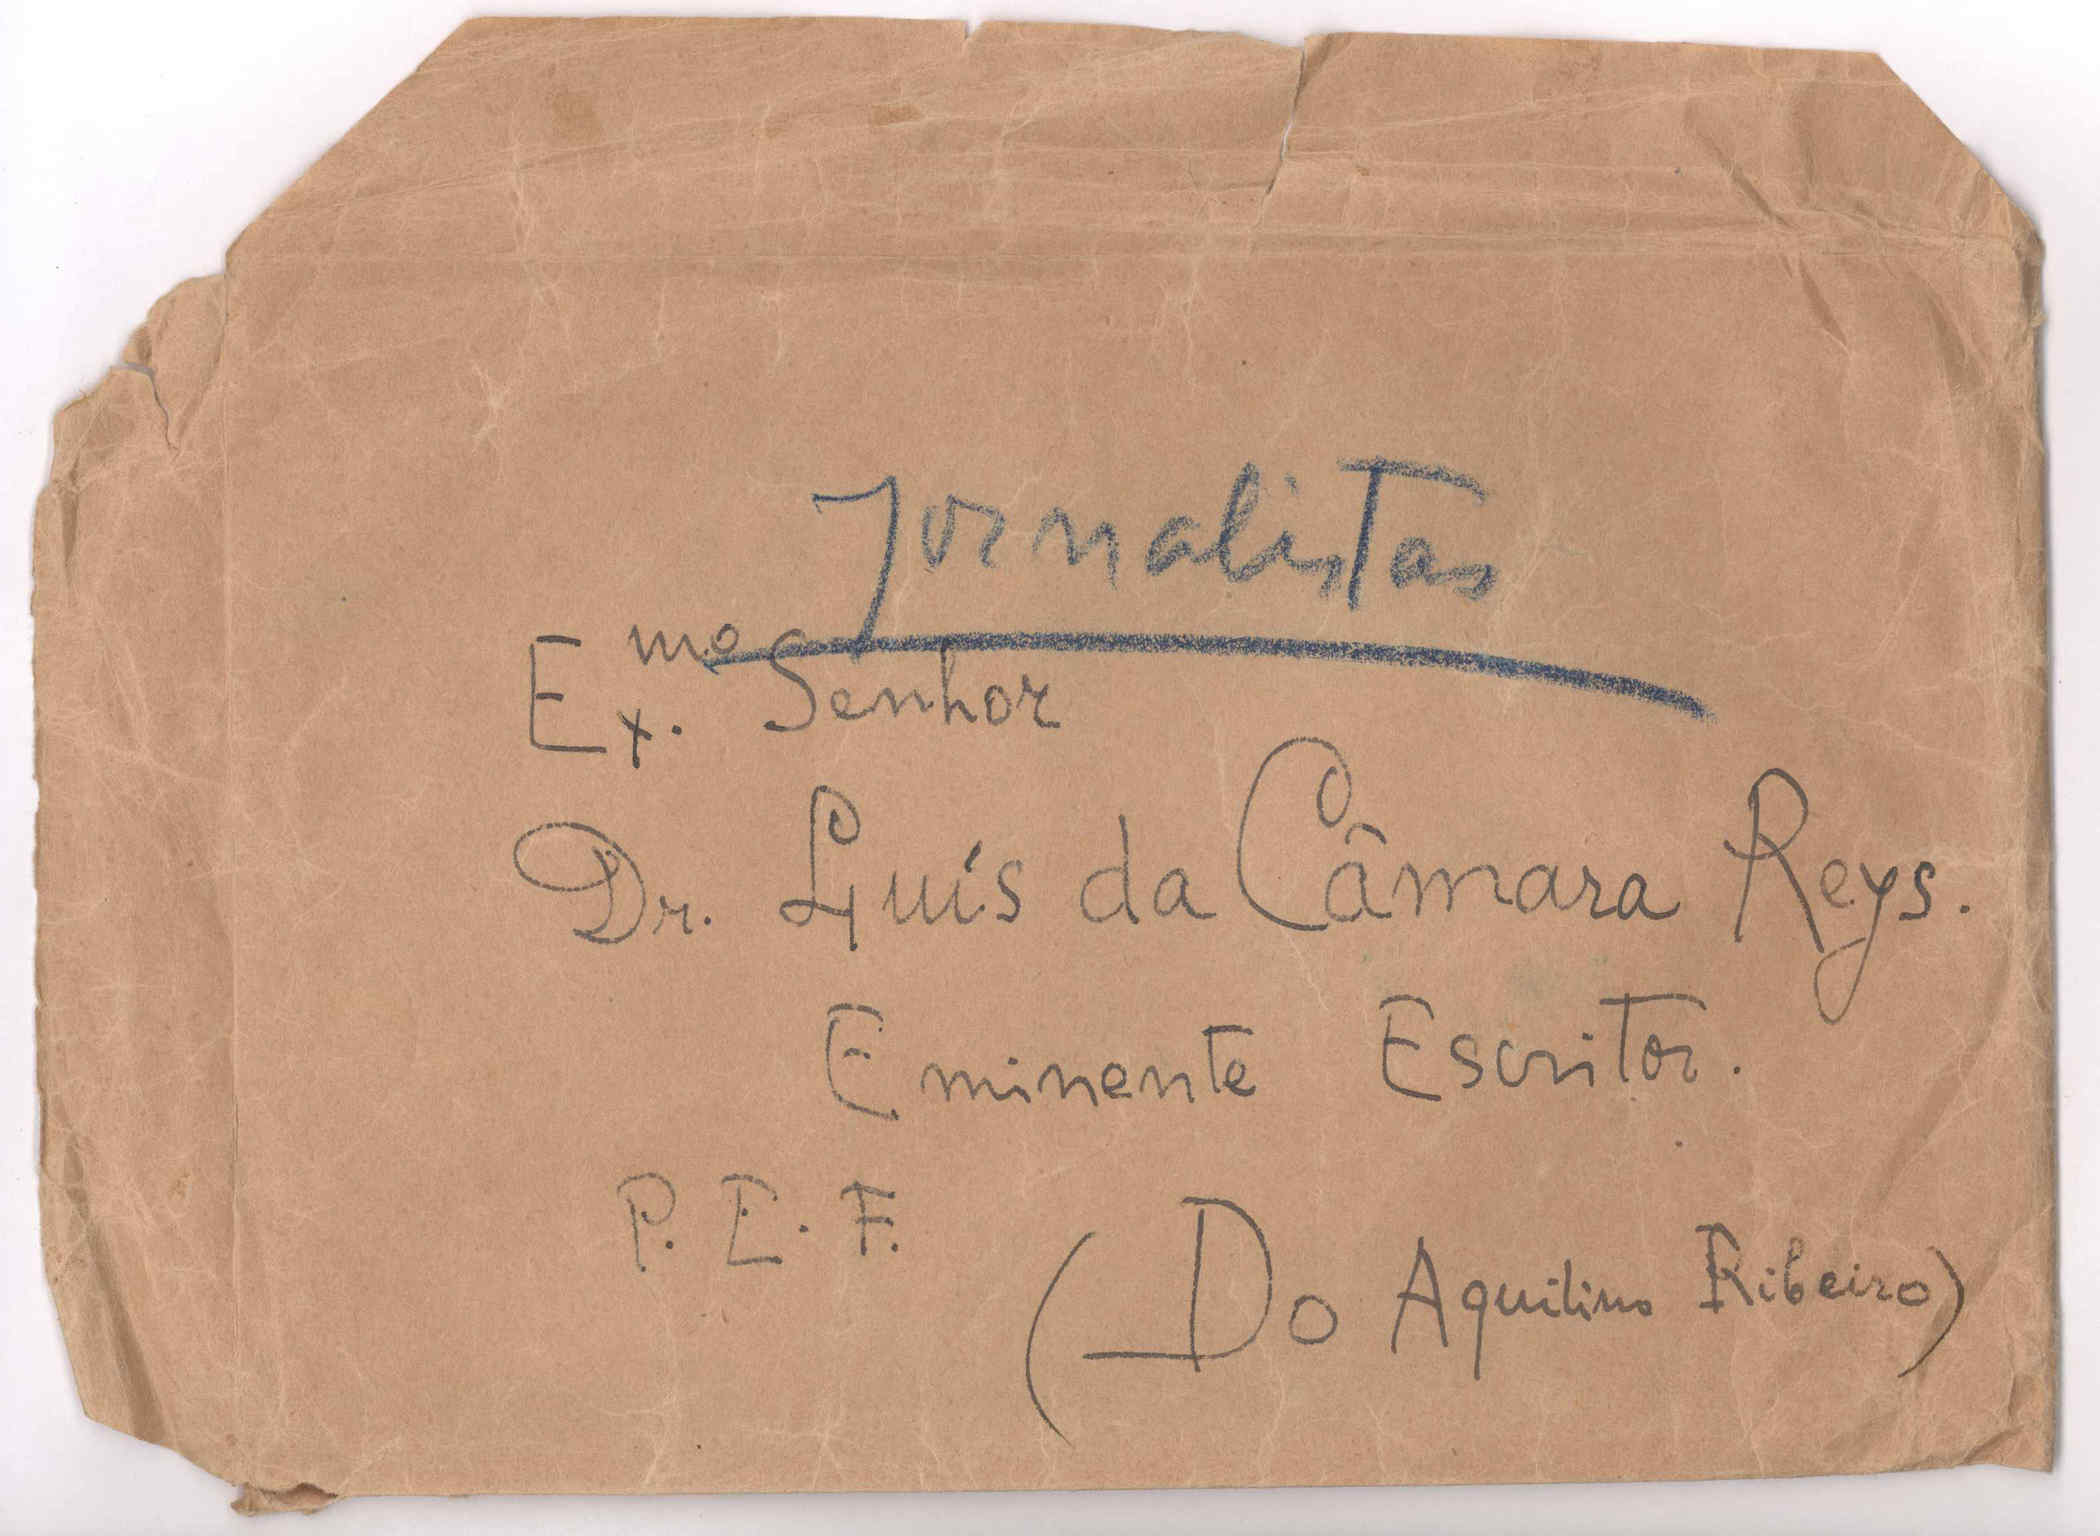 Jornalistas
Ex.mo Senhor
Dr. Luís da Câmara Reys.
Eminente Escritor.
P. E. F.
(Do Aquilino Ribeiro)